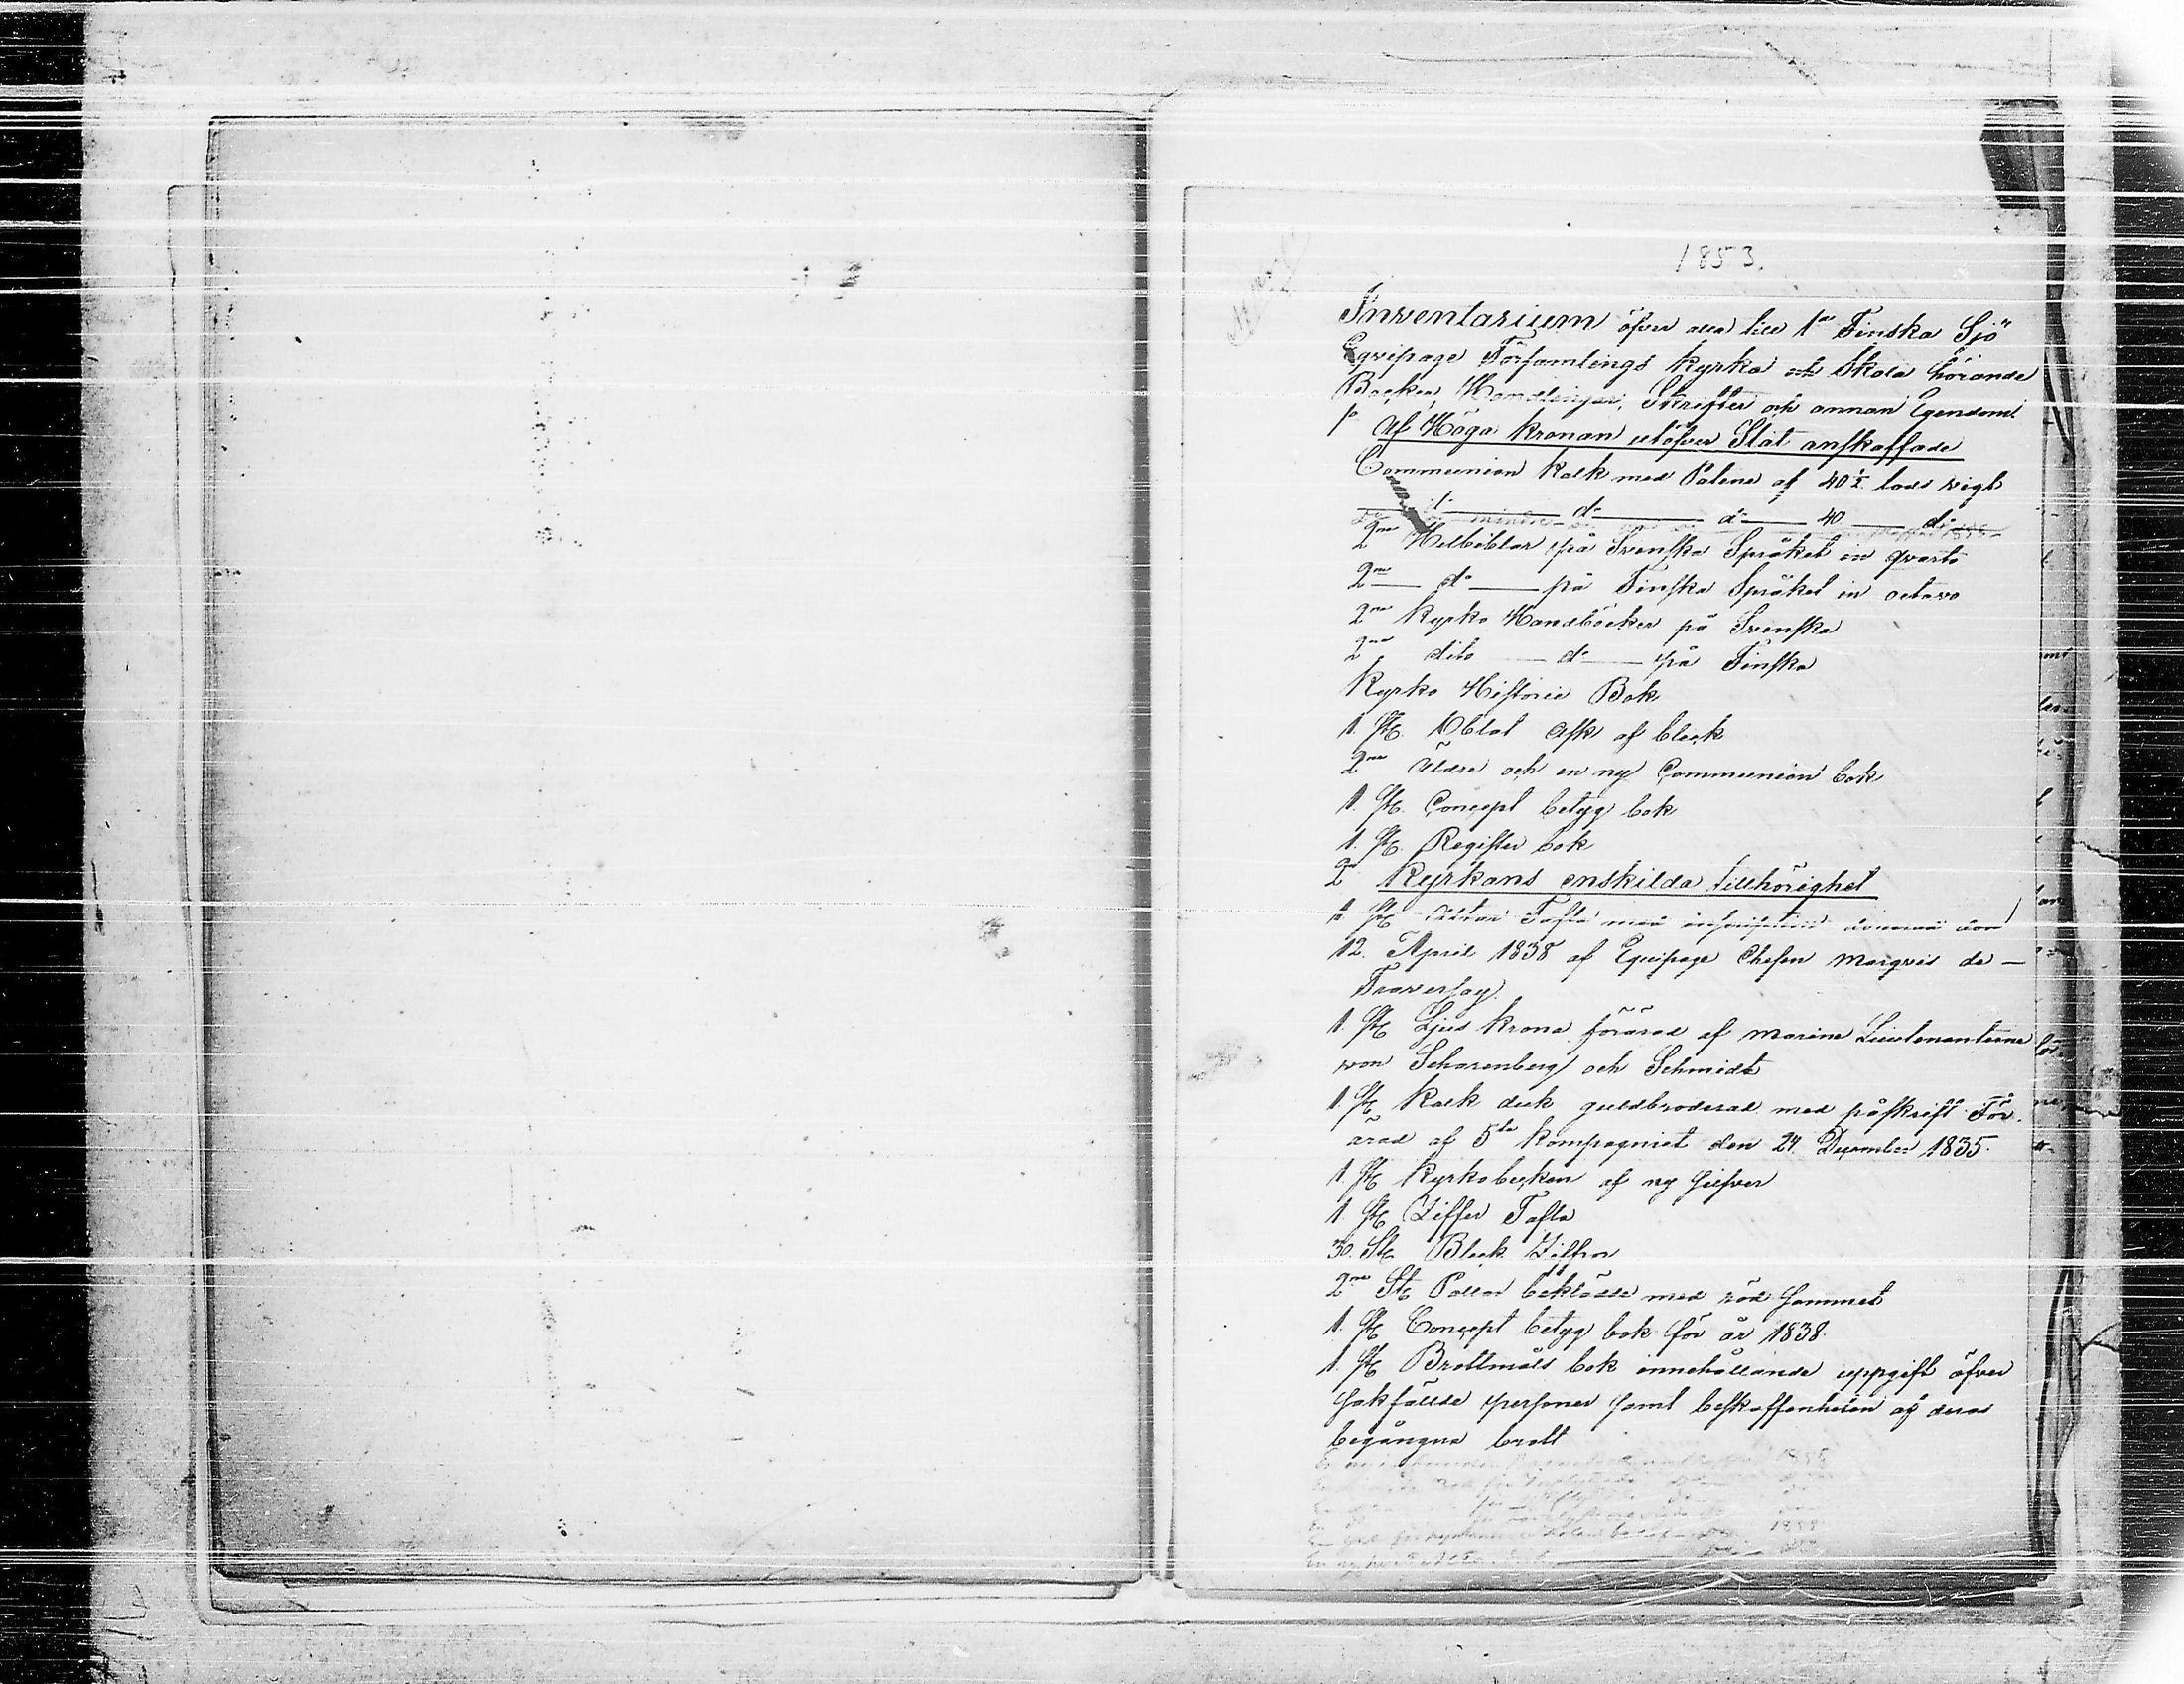 1853.
Inventarium öfver alla till 1a Finska Sjö
Eqvipage Församlings Kyrka och Skola hörande
Böcker, Handlingar, Skrifter och annan Egendom
1o Af Höga Kronan utöfver Stat anskaffade
Communion Kalk med Patene af 40 1/2 lods vigt
do do 40 do
2ne Helbiblar på Svenska Språket in qvarto
2ne do på Finska Språket in octavo
2ne Kyrko Handböcker på Svenska
2ne dito do på Finska
Kyrko Historie Bok
1. St. Oblat Ask af bleck
2ne äldre och en ny Communion bok
1. St. Concept betyg bok
1. St. Register bok
2o Kyrkans enskilda tillhörighet
1. St. Altar Tafla med inscription den
12. April 1838 af Equipage Chefen Marqvis de —
Traversay.
1. St. Ljus Krona förärad af Marine Lieutenanterne
von Scharenberg och Schmidt
1. St. Kalk duk guldbroderad med påskrift För-
ärad af 5te Kompagniet den 24. December 1835.
1. St. Kyrkobecken af ny silfver
1. St. Ziffer Tafla
30. St. Bleck Ziffror
2ne St. Pallar beklädde med röd sammet
1. St. Concept betyg bok för år 1838.
1. St. Brottmåls bok innehållande uppgift öfver
sakfällde personer samt beskaffenheten af deras
begångna brott
1858
1858